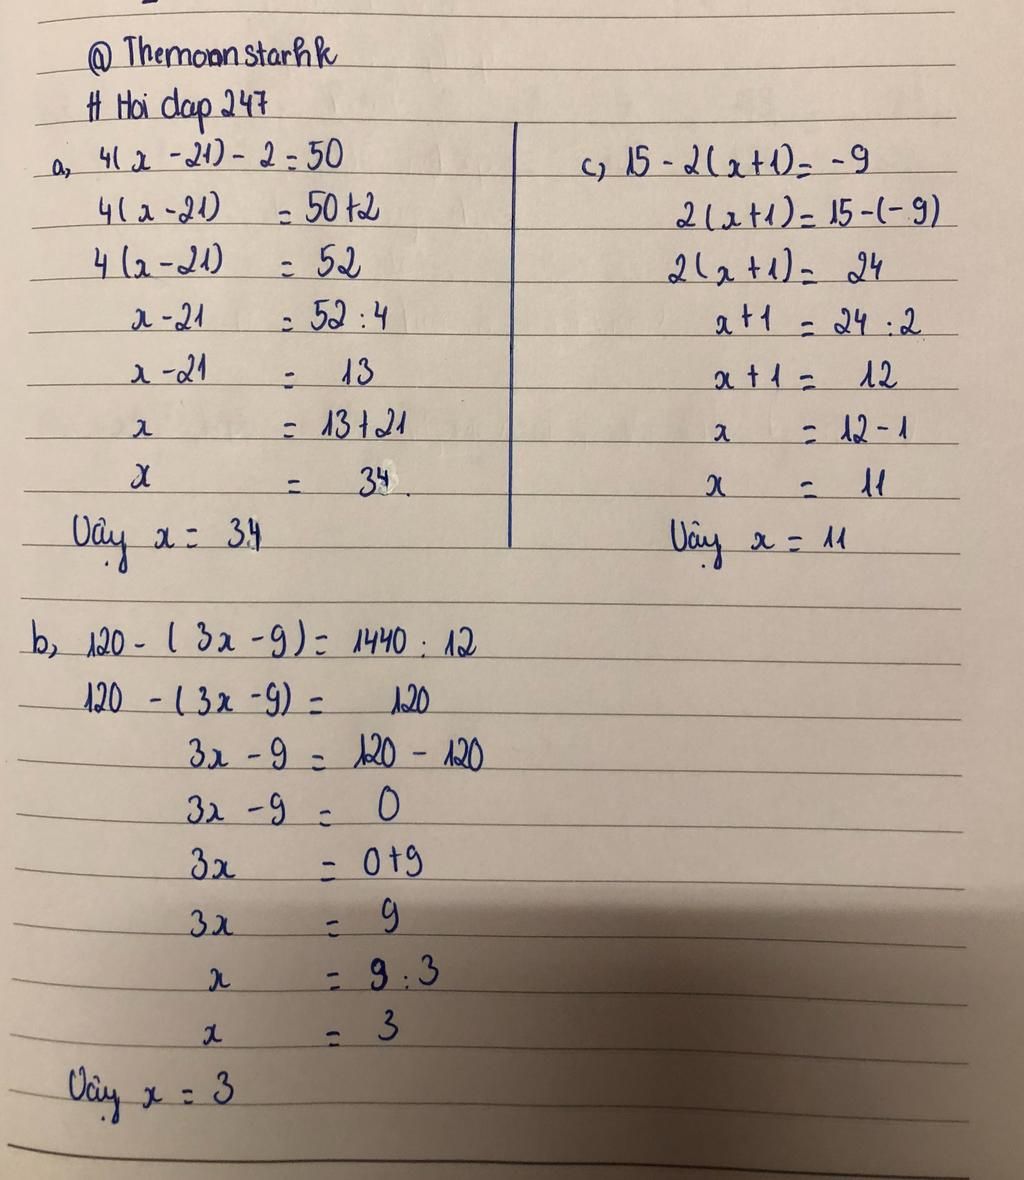 @ Themoonstarhk
# Hoi dap 247
a, 4(x - 21) - 2 = 50
4(x - 21) = 50 + 2
4(x - 21) = 52
x - 21 = 52 : 4
x - 21 = 13
x = 13 + 21
x = 34.
Vậy x = 34
c, 15 - 2(x + 1) = -9
2(x + 1) = 15 - (-9)
2(x + 1) = 24
x + 1 = 24 : 2
x + 1 = 12
x = 12 - 1
x = 11
Vậy x = 11
b, 120 - (3x - 9) = 1440 : 12
120 - (3x - 9) = 120
3x - 9 = 120 - 120
3x - 9 = 0
3x = 0 + 9
3x = 9
x = 9 : 3
x = 3
Vậy x = 3